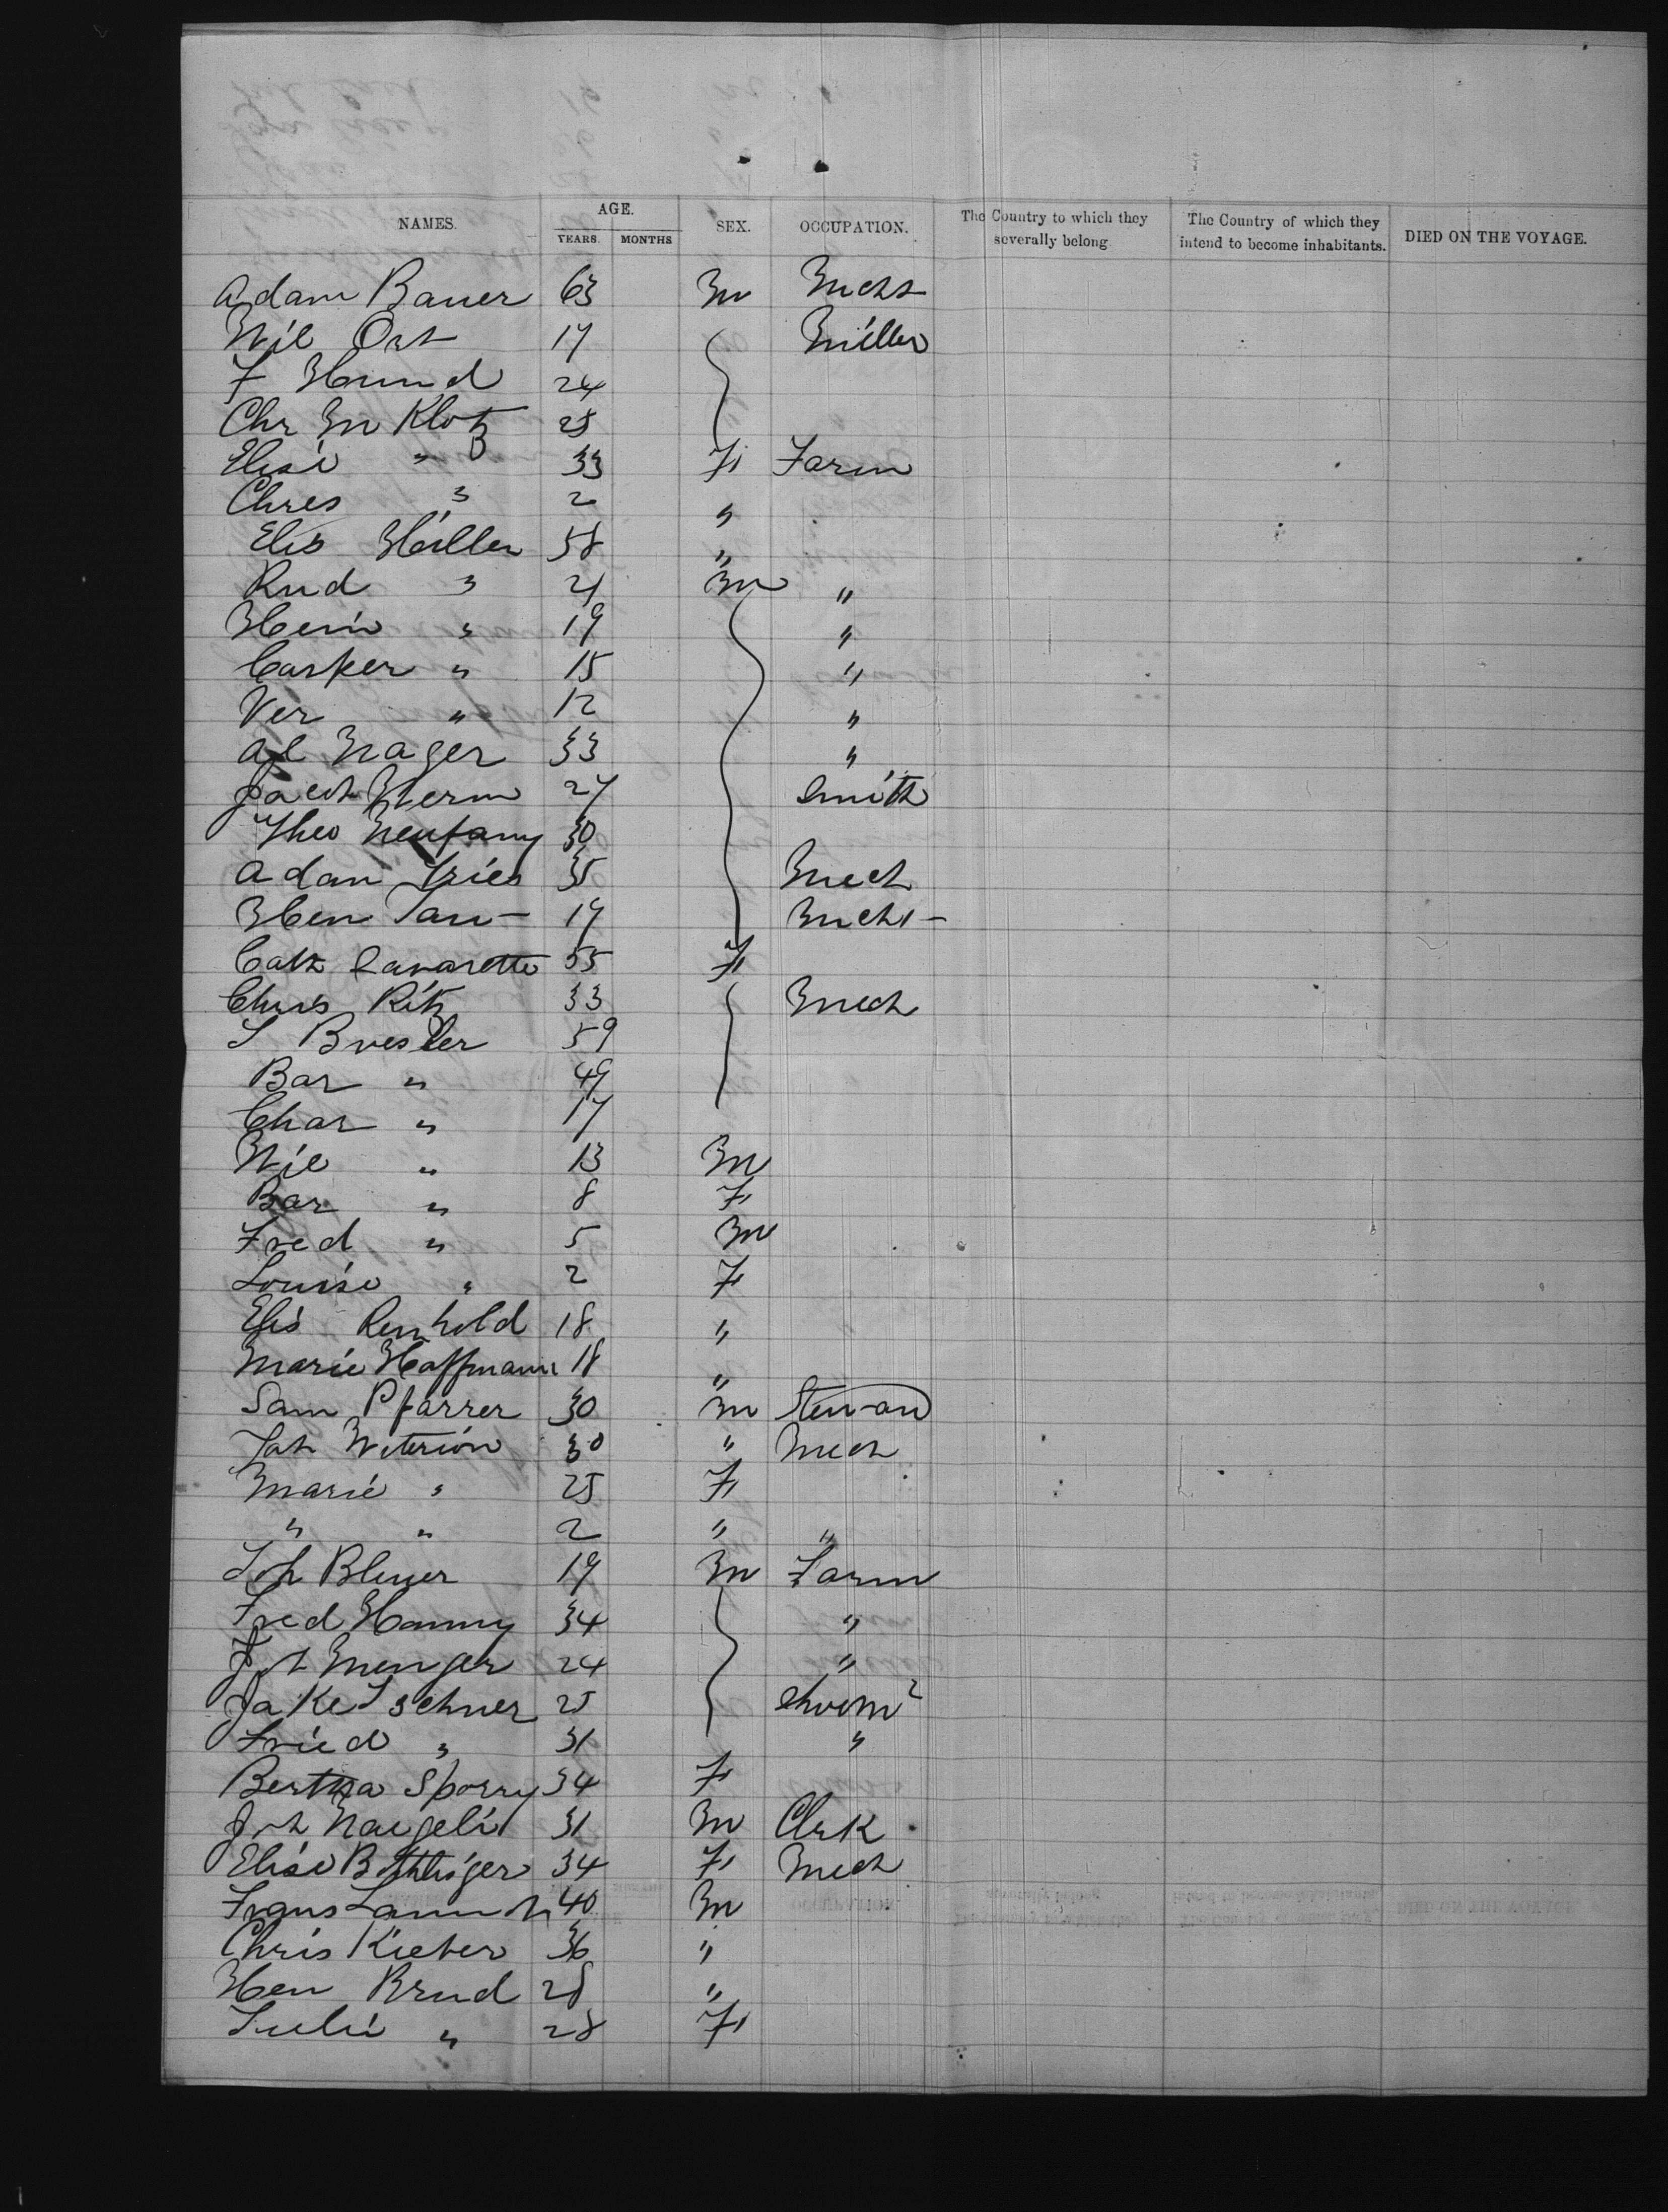 NAMES. AGE. SEX. OCCUPATION. The Country to which they severally belong The Country of which they intend to become inhabitants. DIED ON THE VOYAGE.
YEARS. MONTHS
Adam Bauer 63 M Mcht
Wil Ort 17 Miller
F Hund 24
Chr M Klotz 28
Elise " 33 F Farm
Chres " 2 "
Elis Haller 58 "
Rud " 21 M "
Hein " 19 "
Casper " 15 "
Ver " 12 "
Al Nager 33 "
Jacob Herm 27 Smith
Theo Neufang 30
Adam Fries 35 Mech
Hen Tau 17 Mcht
Cath Lavarette 55 F
Chris Ritz 33 Mech
L Bresler 59
Bar " 49
Char " 17
Wil " 13 M
Bar " 8 F
Fred " 5 M
Louise " 2 F
Elis Renhold 18 "
Marie Hoffmann 18 "
Sam Pfarrer 30 M Steward
Joh Weterion 30 " Mech
Marie " 25 F
" " 2 " "
Joh Bleuer 19 M Farm
Fred Hanny 34 "
Joh Menger 24 "
Jake Tschner 25
Fried " 31 "
Bertha Sporry 34 F
Joh Naegeli 31 M Clrk
Elise 34 F Mech
Frans 40 M
Chris Kieber 36 "
Hen Brud 28 "
Julie " 28 F